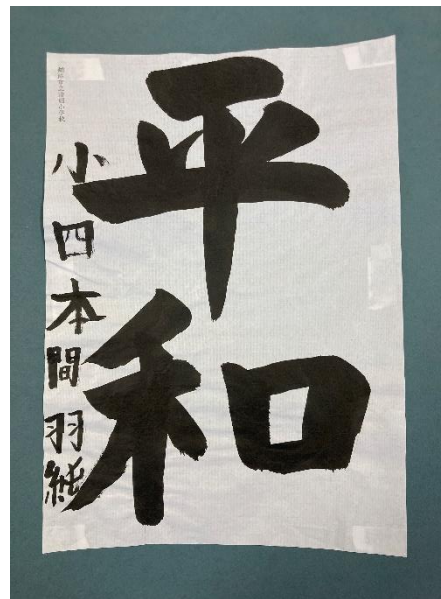 平和
小四 本間羽純